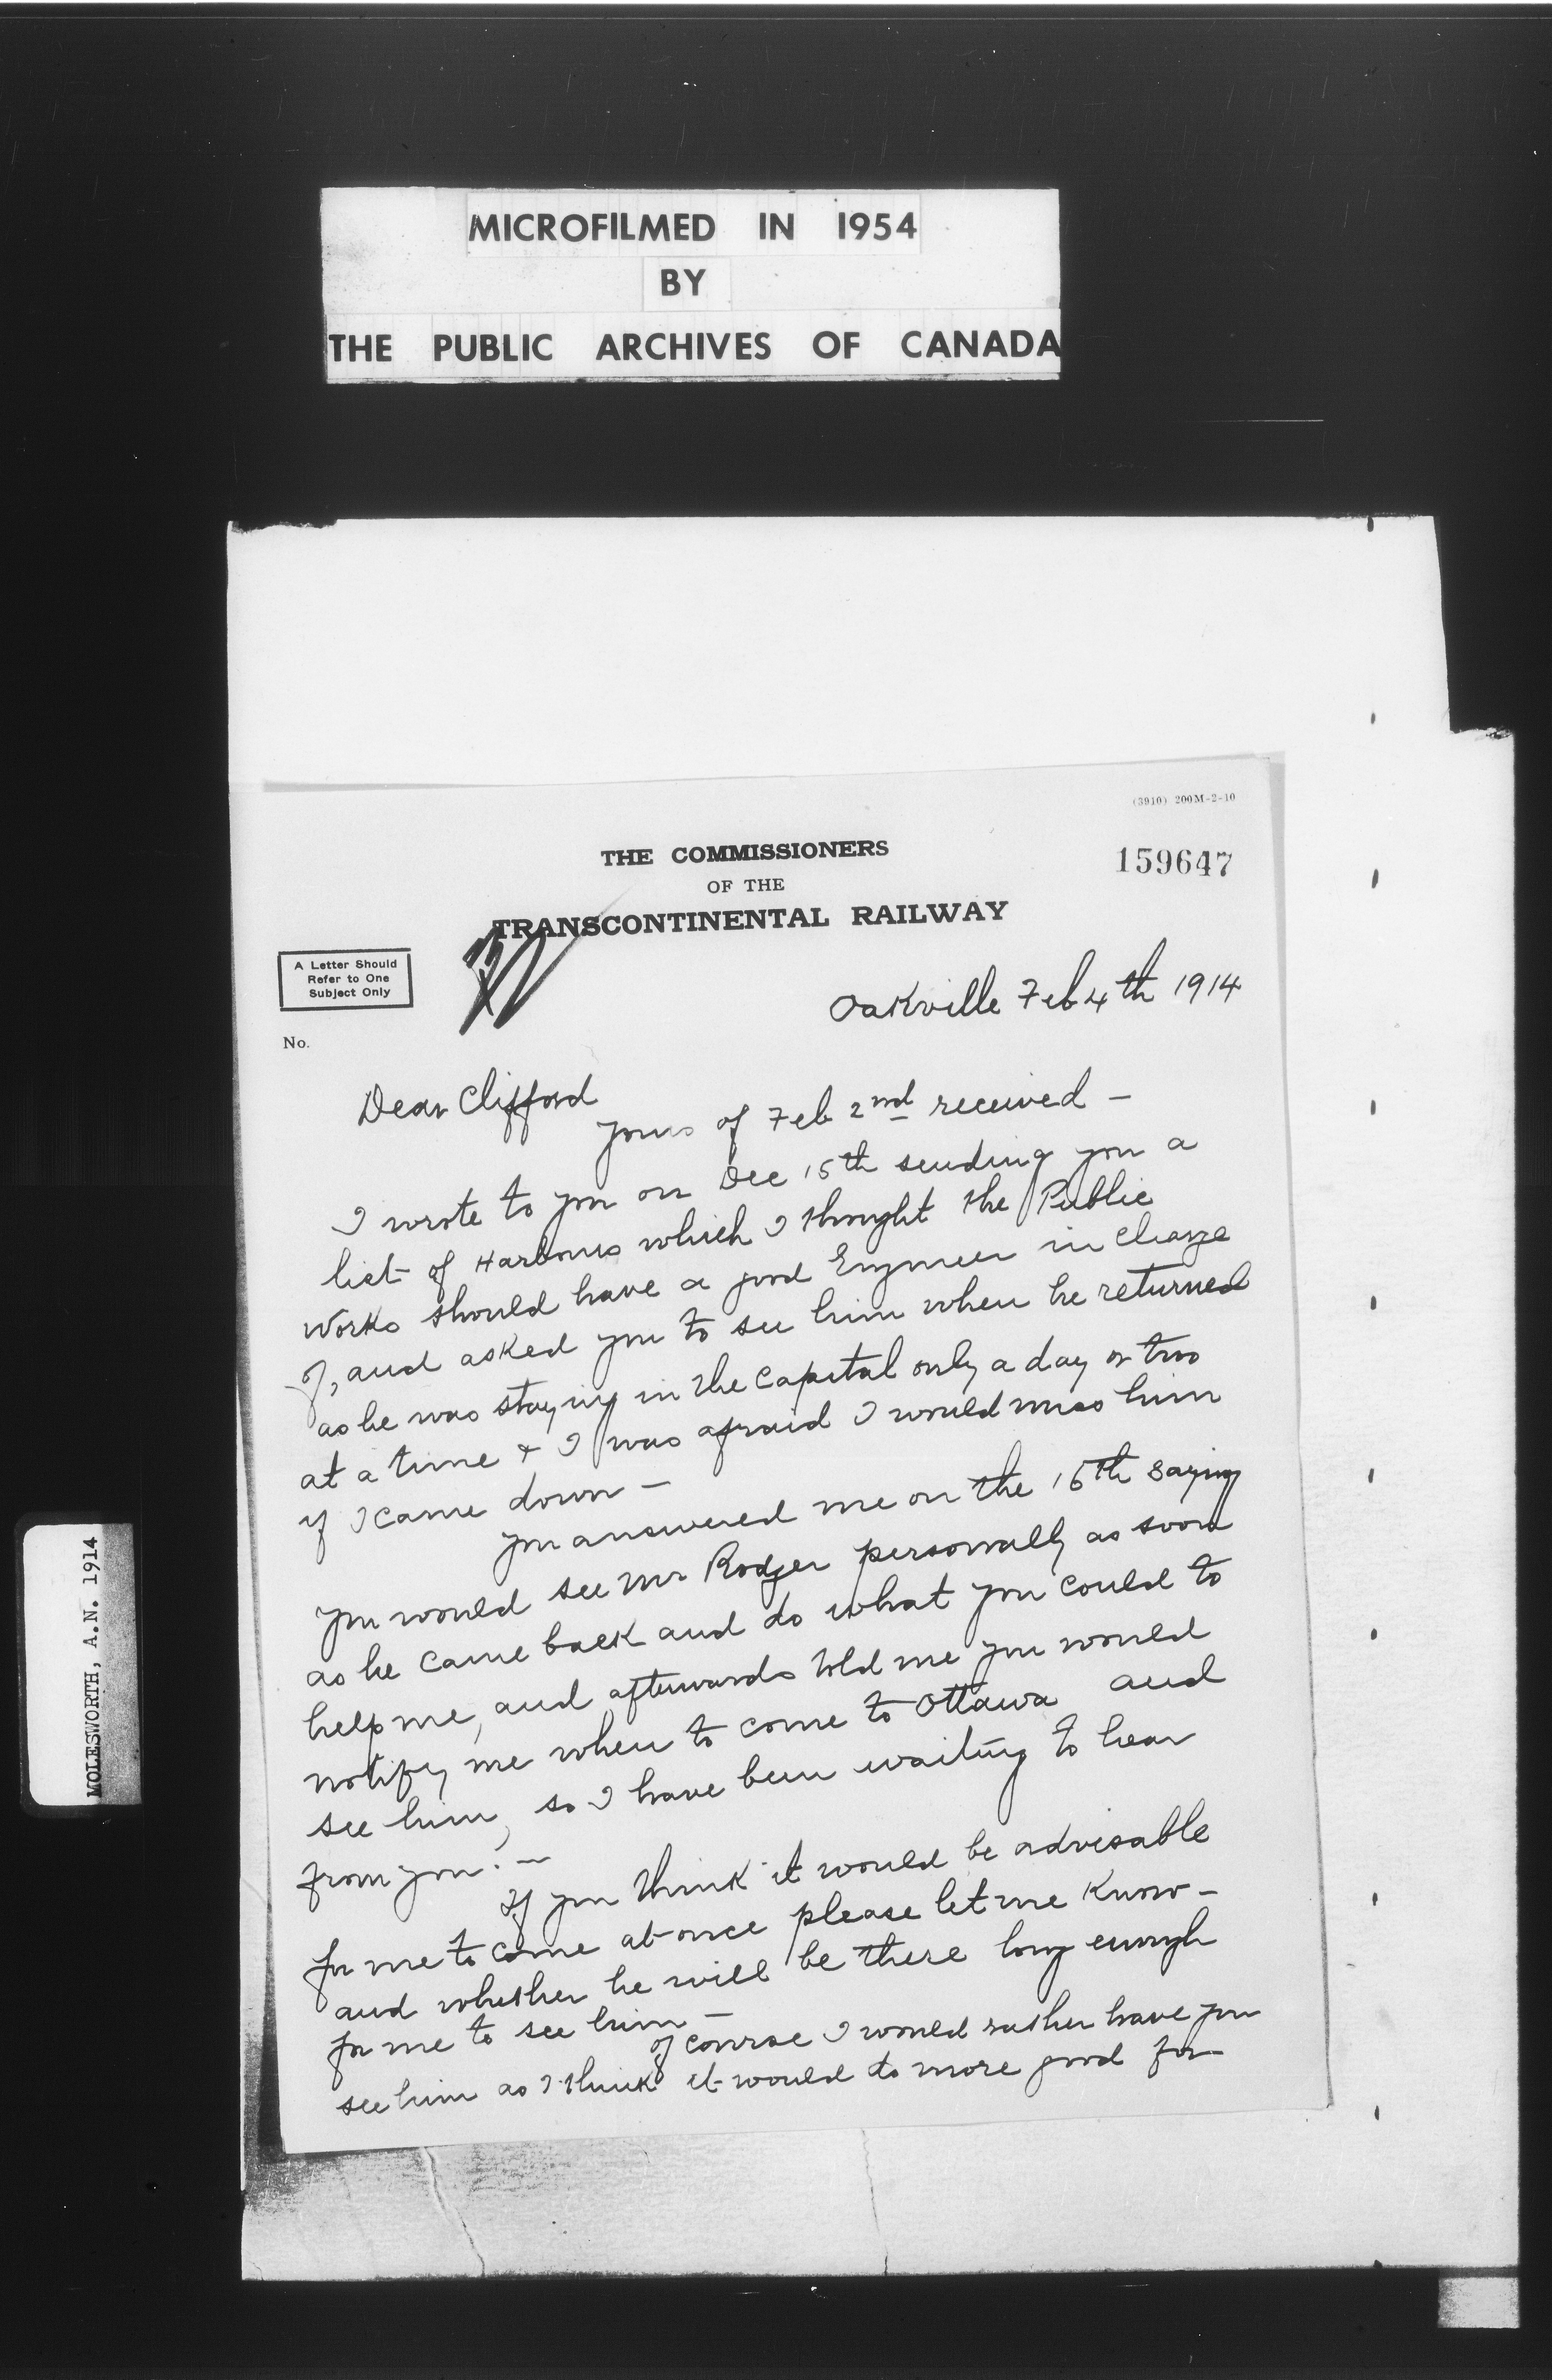 MICROFILMED IN 1954
BY
THE PUBLIC ARCHIVES OF CANADA
(3910) 200M-2-10
THE COMMISSIONERS
159647
OF THE
TRANSCONTINENTAL RAILWAY
A Letter Should
Refer to One
Subject Only
No.
Oakville Feb 4th 1914
Dear Clifford
Yours of Feb 2nd received —
I wrote to you on Dec 15th sending you a
list of Harbours which I thought the Public
Works should have a good Engineer in charge
of, and asked you to see him when he returned
as he was staying in the Capital only a day or two
at a time + I was afraid I would miss him
if I came down —
You answered me on the 15th saying
you would see Mr Rodger personally as soon
as he came back and do what you could to
help me, and afterwards told me you would
notify me when to come to Ottawa and
see him, so I have been waiting to hear
from you. —
If you think it would be advisable
for me to come at once please let me know —
and whether he will be there long enough
for me to see him —
of course I would rather have you
see him as I think it would do more good for
MOLESWORTH, A.N. 1914